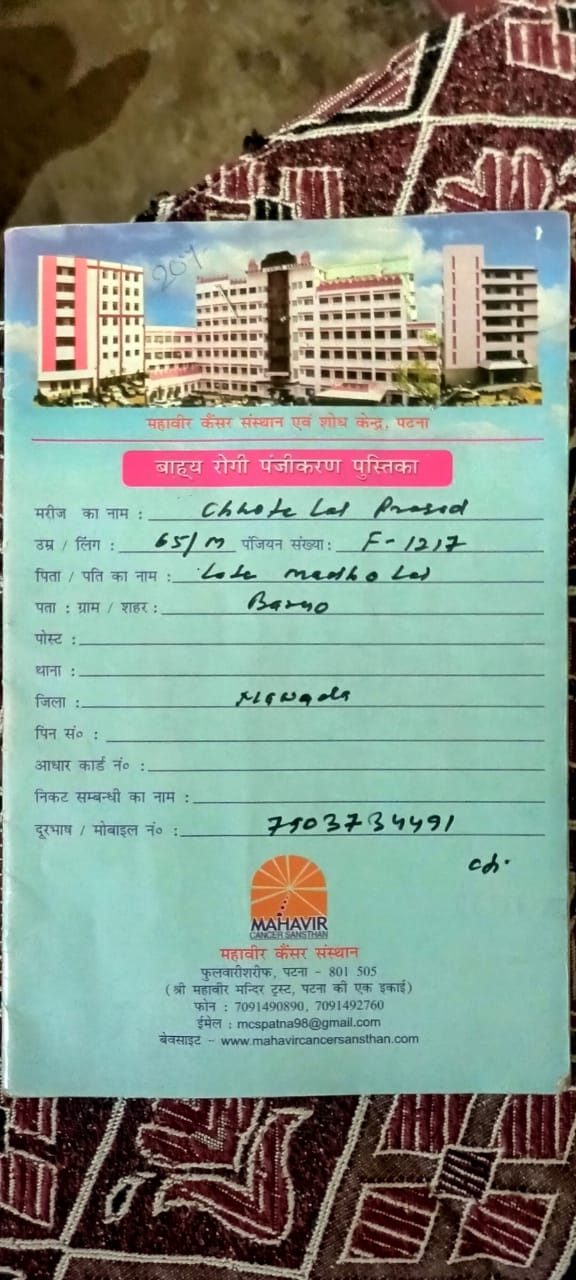 207
महावीर कैंसर संस्थान एवं शोध केन्द्र, पटना
बाह्य रोगी पंजीकरण पुस्तिका
मरीज का नाम : Chhote Lal Prasad
उम्र / लिंग : 65/M पंजियन संख्या: F-1217
पिता / पति का नाम : Late Madho Lal
पता : ग्राम / शहर :
पोस्ट :
थाना :
जिला : Nawada
पिन सं० :
आधार कार्ड नं० :
निकट सम्बन्धी का नाम :
दूरभाष / मोबाइल नं० : 7903734491
MAHAVIR
CANCER SANSTHAN
महावीर कैंसर संस्थान
फुलवारीशरीफ, पटना - 801 505
( श्री महावीर मन्दिर ट्रस्ट, पटना की एक इकाई)
फोन : 7091490890, 7091492760
ईमेल : mcspatna98@gmail.com
बेवसाइट - www.mahavircancersansthan.com